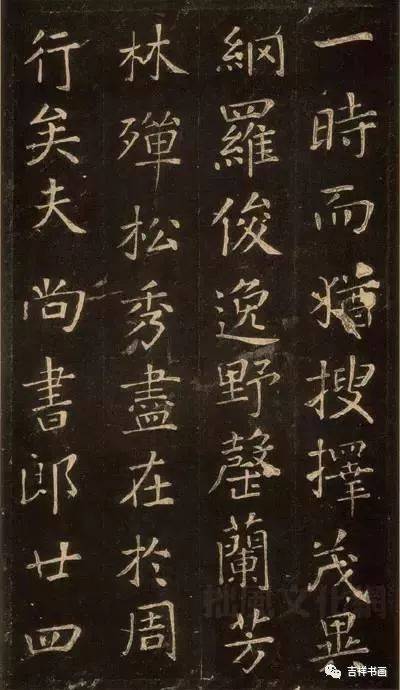 一時而猶搜擇茂異
網羅俊逸野罄蘭芳
林殫松秀盡在於周
行矣夫尚書郎廿四
拙風文化網
吉祥书画